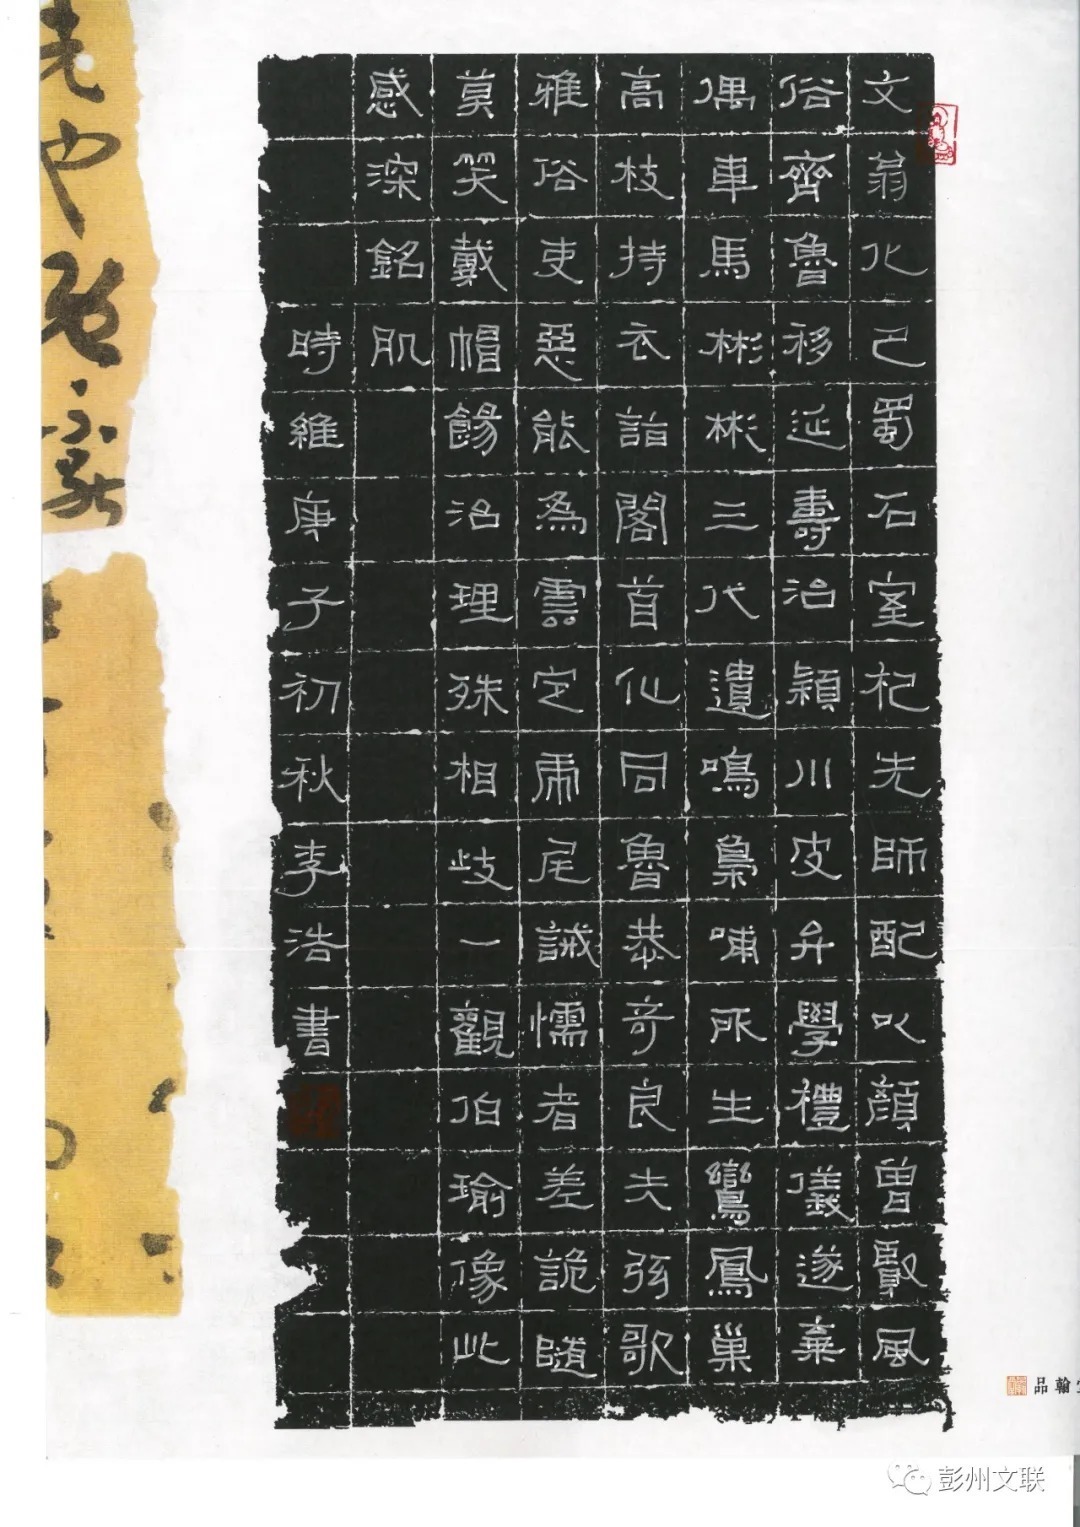 文翁化己蜀石室杞先師配以顏曾賢風
俗齊魯移延壽治穎川皮弁學禮儀遂棄
偶車馬彬彬三代遺鳴梟哺所生鸞鳳巢
高枝持衣詣閣首仙同魯恭奇良夫弦歌
雅俗吏惡能為雲定虎尾誡懦者差詭隨
莫笑戴帽餳治理殊相歧一觀伯瑜像此
感深銘肌
時維庚子初秋李浩書
翰品
彭州文联